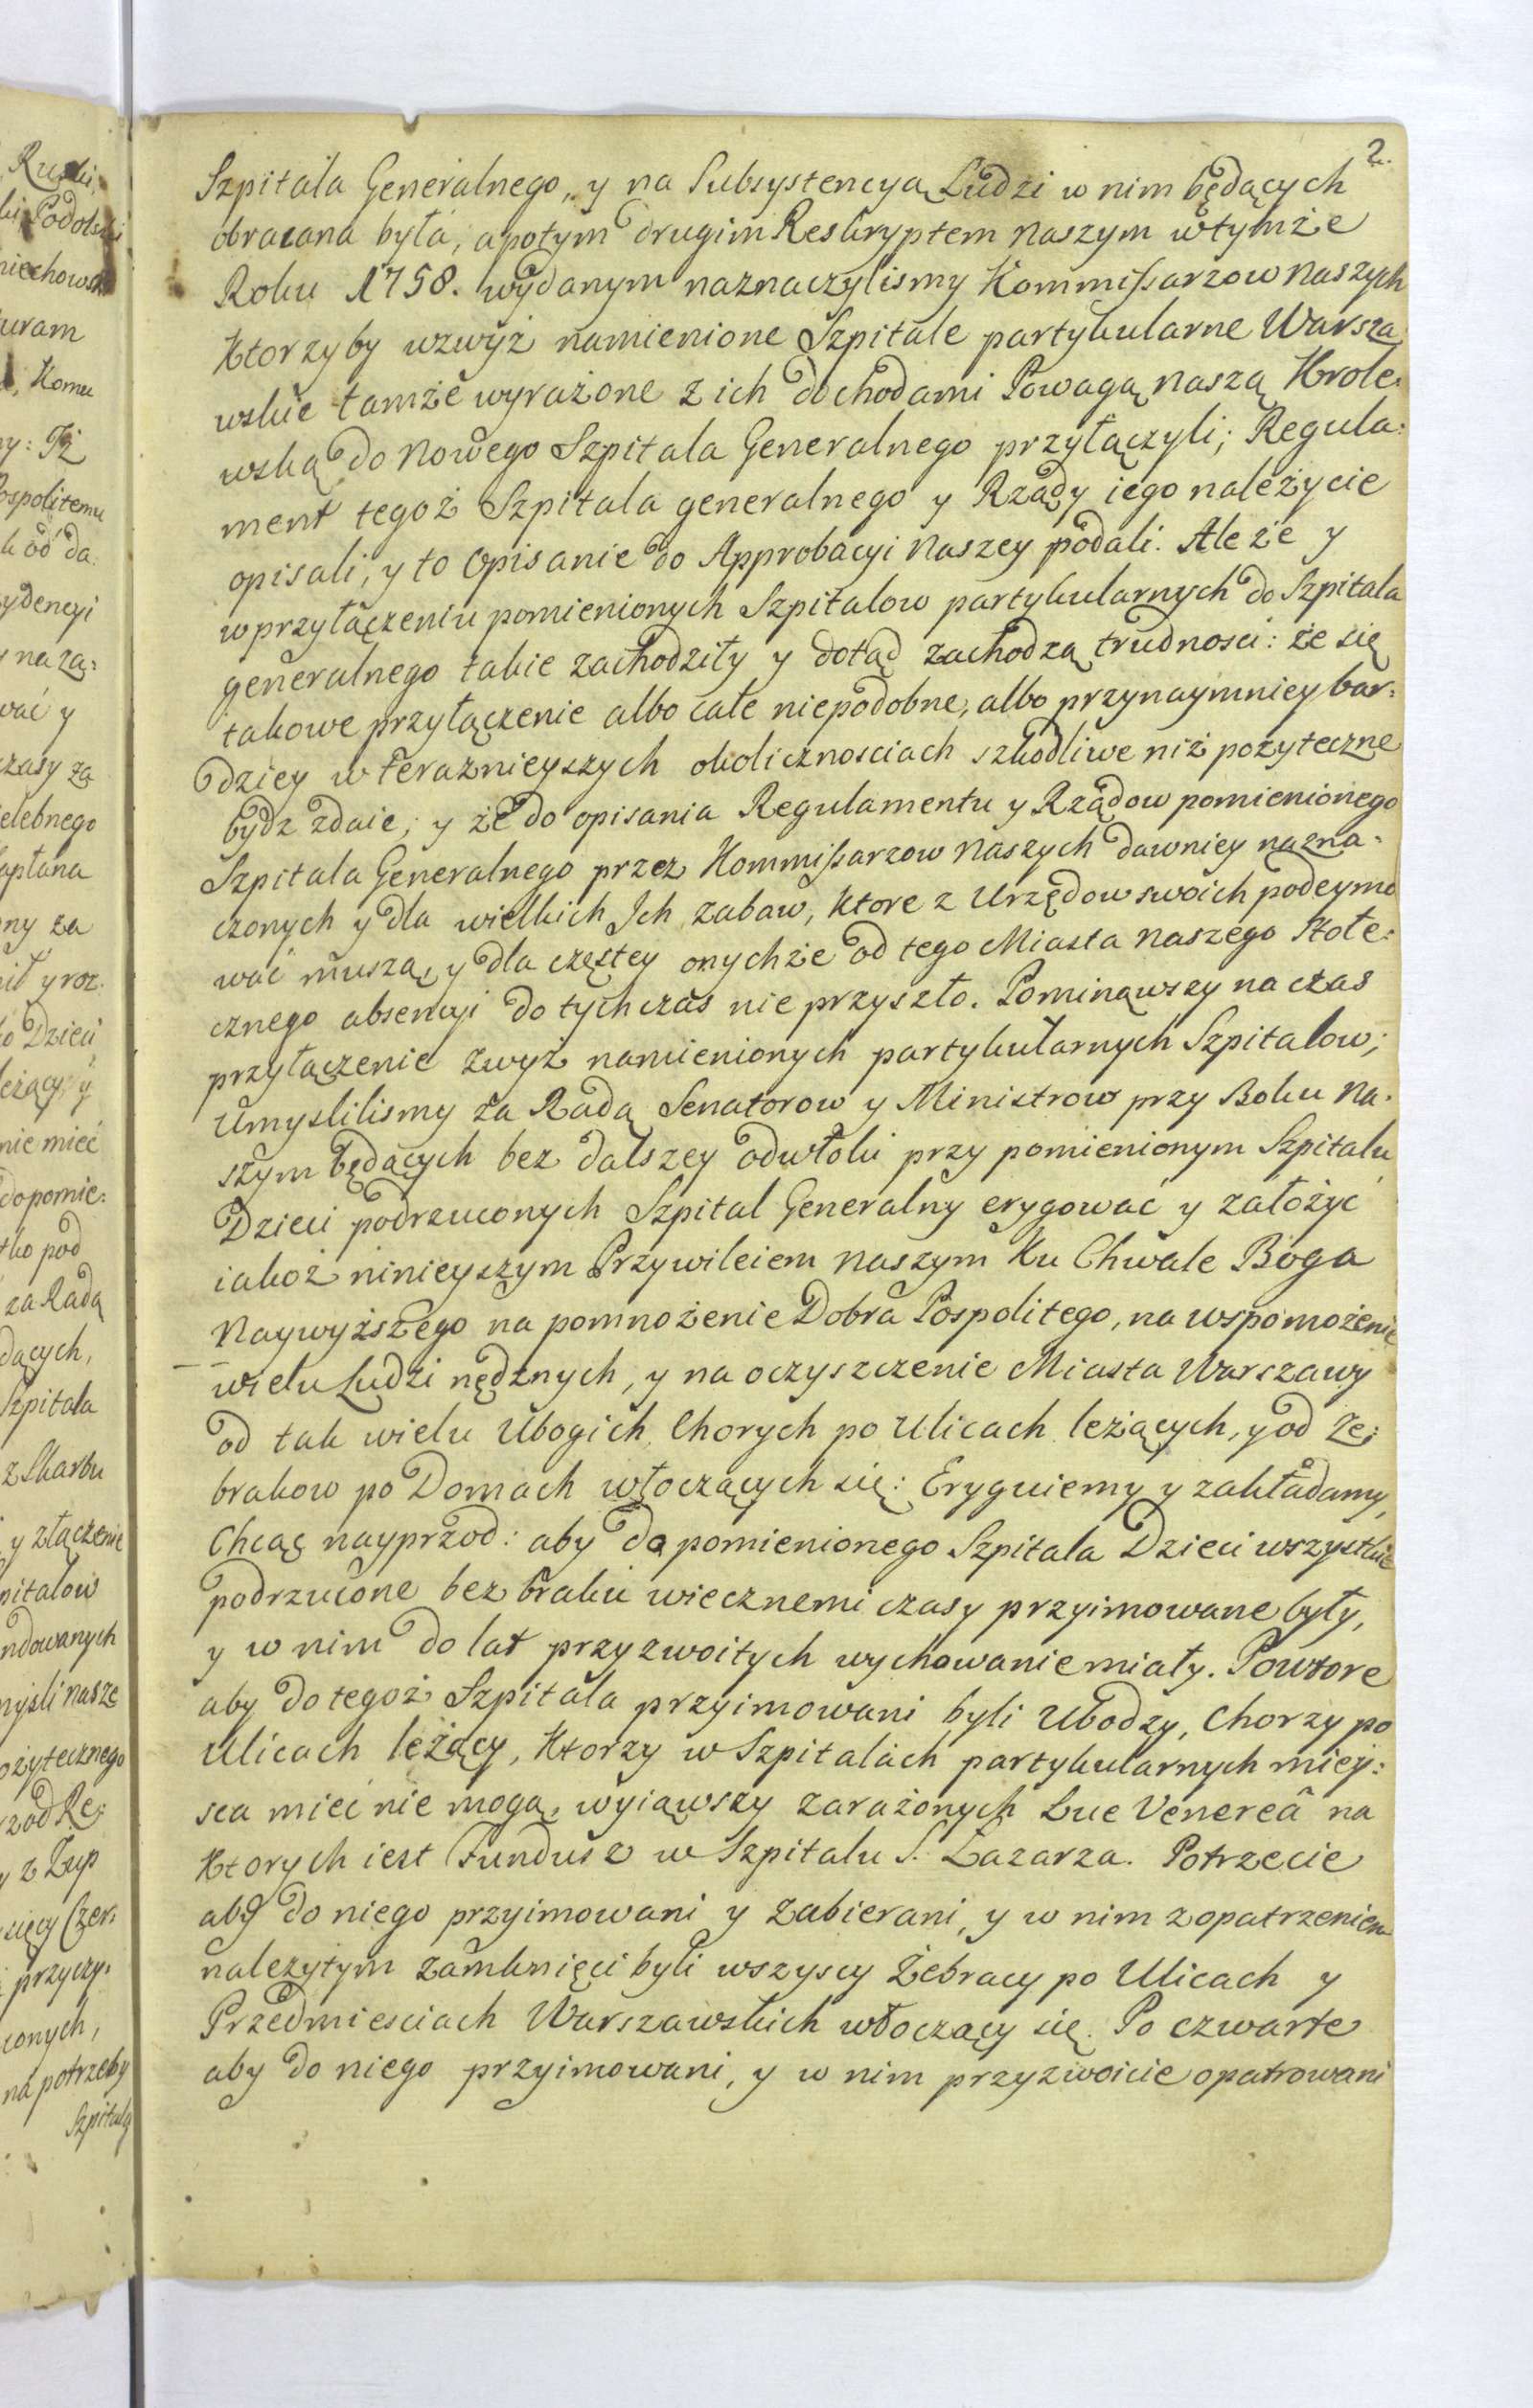 2.
Szpitala Generalnego, y na Subsystencyą Ludzi w nim będących
obracana była, a potym drugim Reskryptem Naszym w tymże
Roku 1758. wydanym naznaczylismy Kommissarzow Naszych
Ktorzyby wzwyż namienione Szpitale partykularne Warsza
wskie tamże wyrażone z ich dochodami Powagą naszą Krole:
wską do Nowego Szpitala Generalnego przyłączyli; Regula:
ment tegoż Szpitala generalnego y Rządy iego należycie
opisali, y to Opisanie do Approbacyi Naszey podali. Ale że y
w przyłączeniu pomienionych Szpitalow partykularnych do Szpitala
generalnego takie zachodziły y dotąd zachodzą trudnosci: że się
takowe przyłączenie albo całe niepodobne, albo przynaymniey bar:
dziey w teraznieyszych okolicznosciach szkodliwe niż pożyteczne
bydz zdaie; y że do opisania Regulamentu y Rządow pomienionego
Szpitala Generalnego przez Kommissarzow Naszych dawniey nazna:
czonych y dla wielkich Ich zabaw, Ktore z Urzędow swoich podeymo
wać muszą, y dla częstey onychże od tego Miasta Naszego Stołe:
cznego absencyi do tychczas nie przyszło. Pominąwszy na czas
przyłączenie zwyż namienionych partykularnych Szpitalow;
Umyslilismy za Radą Senatorow y Ministrow przy Boku Na:
szym będących bez dalszey odwłoki przy pomienionym Szpitalu
Dzieci podrzuconych Szpital Generalny erygować y założyć
iakoż ninieyszym Przywileiem Naszym Ku Chwale Boga
Naywyższego na pomnożenie Dobra Pospolitego, na wspomożenie
wielu Ludzi nędznych, y na oczyszczenie Miasta Warszawy
od tak wielu Ubogich Chorych po Ulicach leżących, y od Że:
brakow po Domach włoczących się: Eryguiemy y zakładamy,
Chcąc nayprzod: aby do pomienionego Szpitala Dzieci wszystkie
podrzucone bez braku wiecznemi czasy przyimowane były,
y w nim do lat przyzwoitych wychowanie miały. Powtore
aby do tegoż Szpitala przyimowani byli Ubodzy, Chorzy po
Ulicach leżący, Ktorzy w Szpitalach partykularnych miey:
sca mieć nie mogą, wyiąwszy zarażonych Lue Venereâ na
Ktorych iest Fundusz w Szpitalu S. Łazarza. Potrzecie
aby do niego przyimowani y zabierani, y w nim z opatrzeniem
należytym zamknięci byli wszyscy Żebracy po Ulicach y
Przedmiesciach Warszawskich włoczący się. Po czwarte
aby do niego przyimowani, y w nim przyzwoicie opatrowani